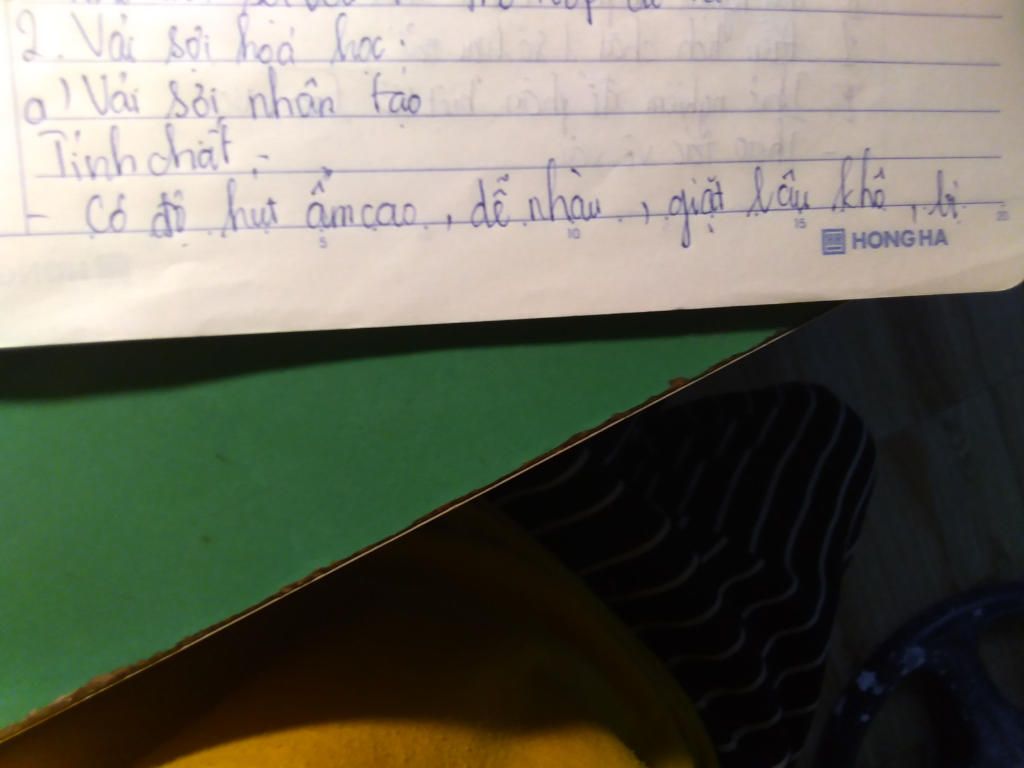 2. Vải sợi hoá học:
a) Vải sợi nhân tạo
Tính chất:
- Có độ hút ẩm cao, dễ nhàu, giặt lâu khô, bị
5 10 15 20
HONG HA